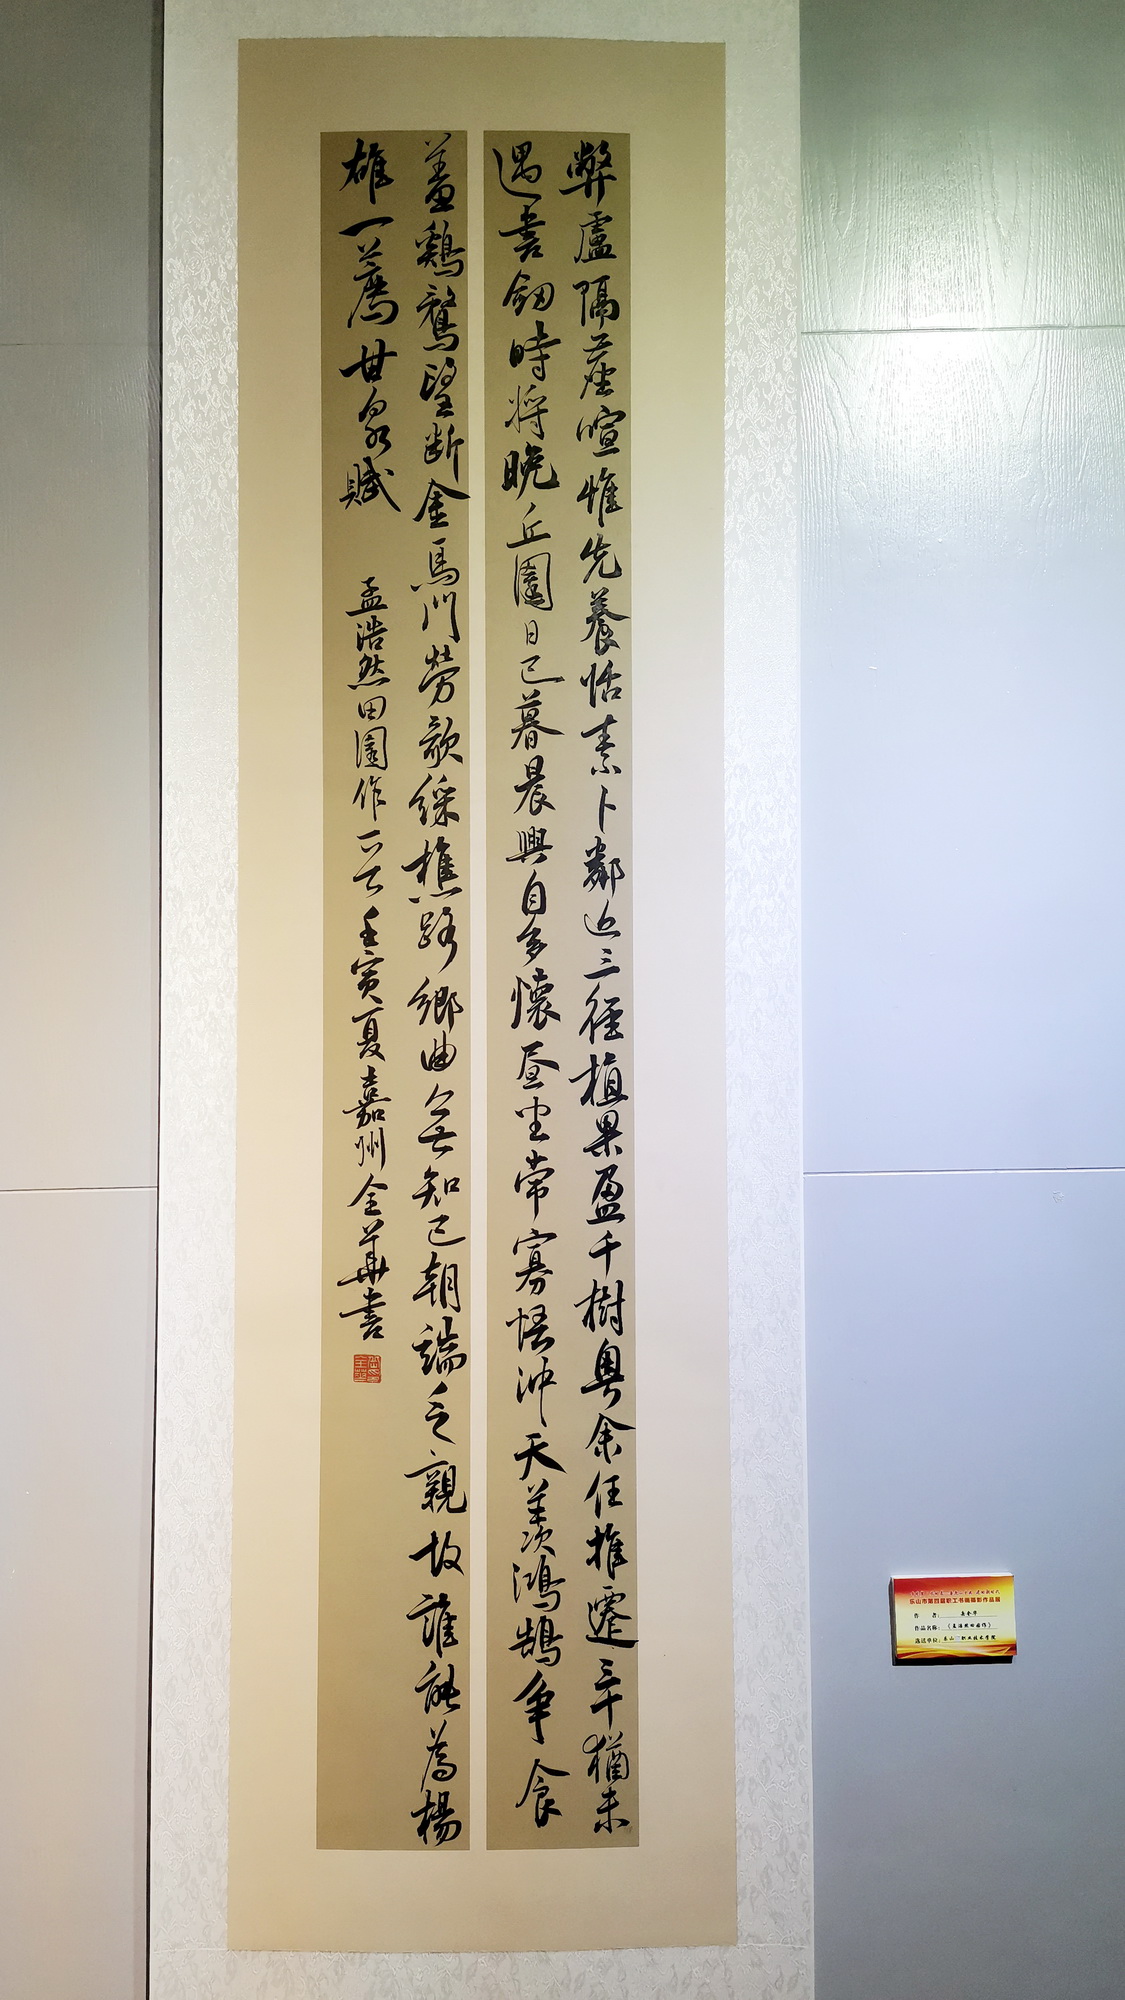 弊廬隔塵喧惟先養恬素卜鄰近三徑植果盈千樹粤余任推遷三十猶未
遇書劒時將晚丘園日已暮晨興自多懷晝坐常寡悟沖天羨鴻鵠争食
羞鷄鶩望斷金馬門勞歌綵樵路鄉曲無知己朝端乏親故誰能為楊
雄一薦甘泉賦
孟浩然田園作一首壬寅夏嘉州全華書
乐山市第四届职工书画摄影作品展
作 者:
作品名称:《孟浩然田园作》
选送单位:乐山 职业技术学院